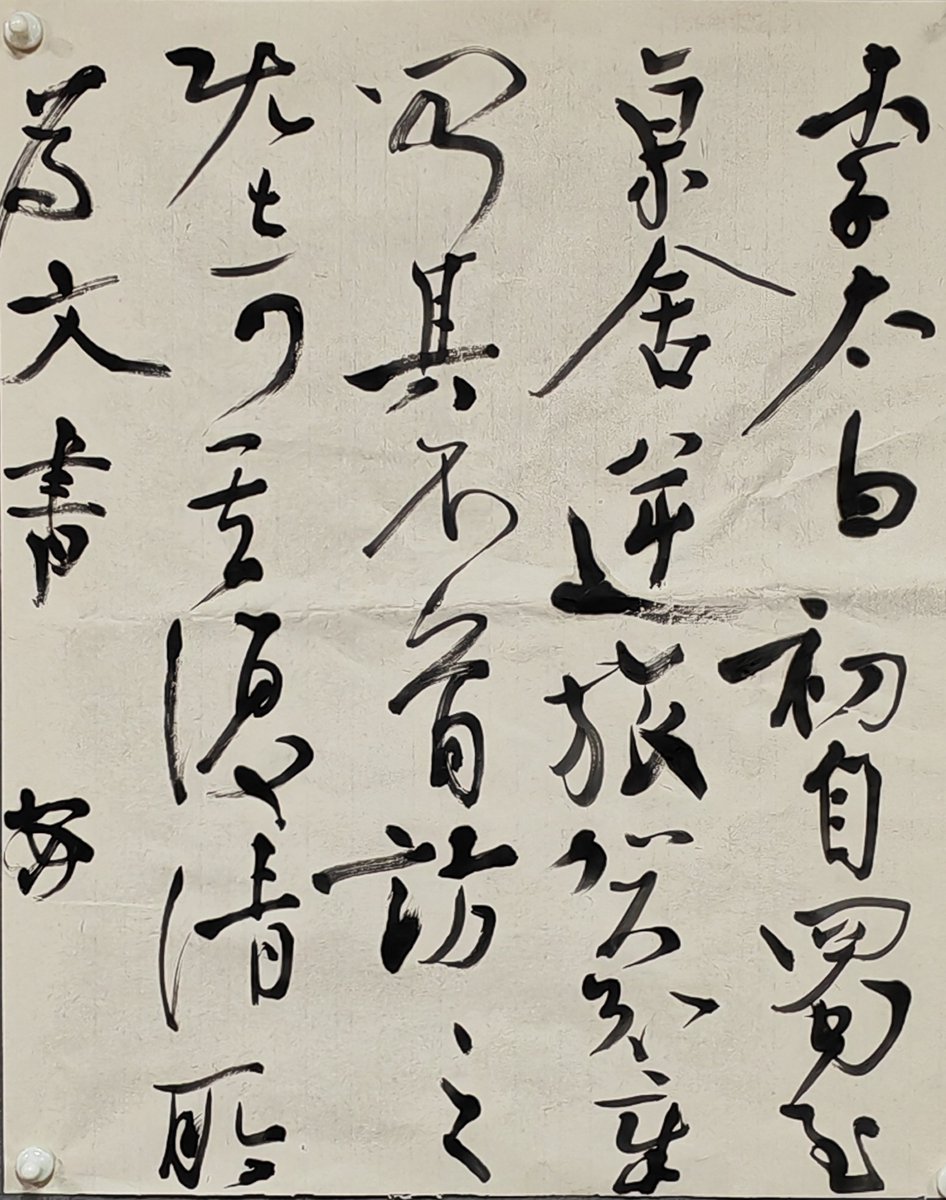 李太白初自蜀至
京舍逆旅賀知章
聞其名首訪之
既奇其復請所
為文書